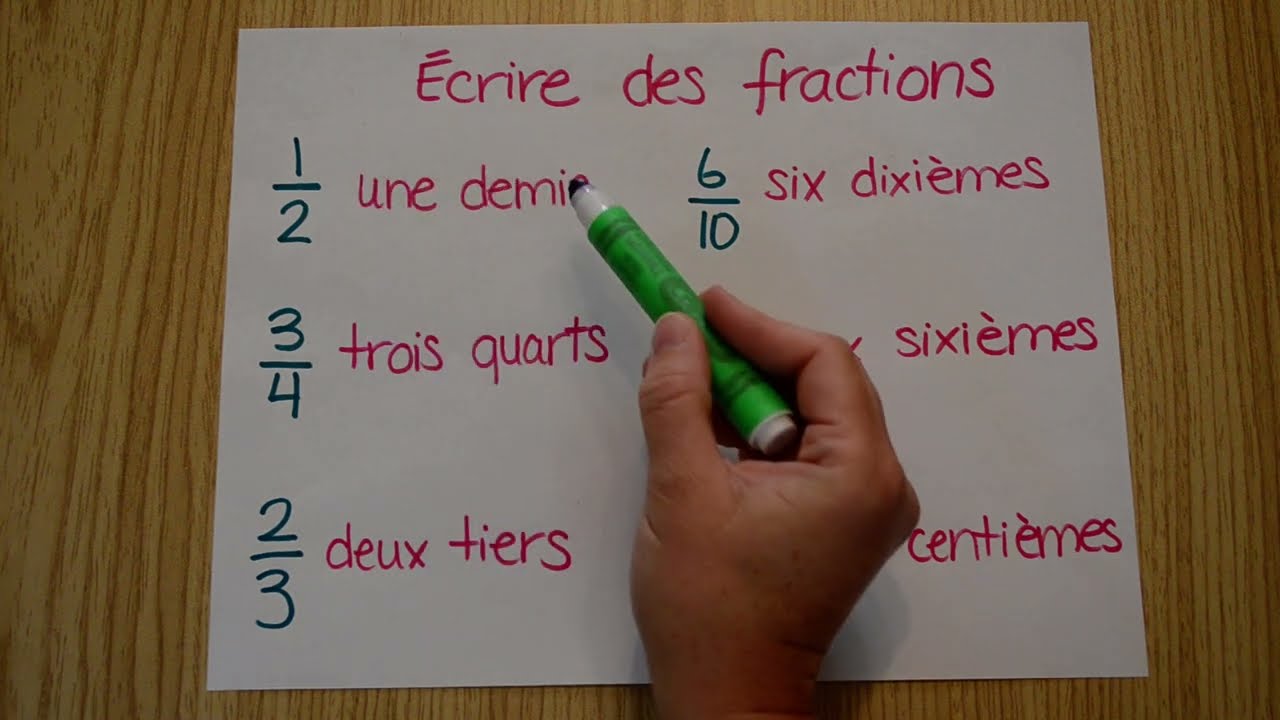 Écrire des fractions
1/2 une demie
6/10 six dixièmes
3/4 trois quarts
sixièmes
2/3 deux tiers
centièmes